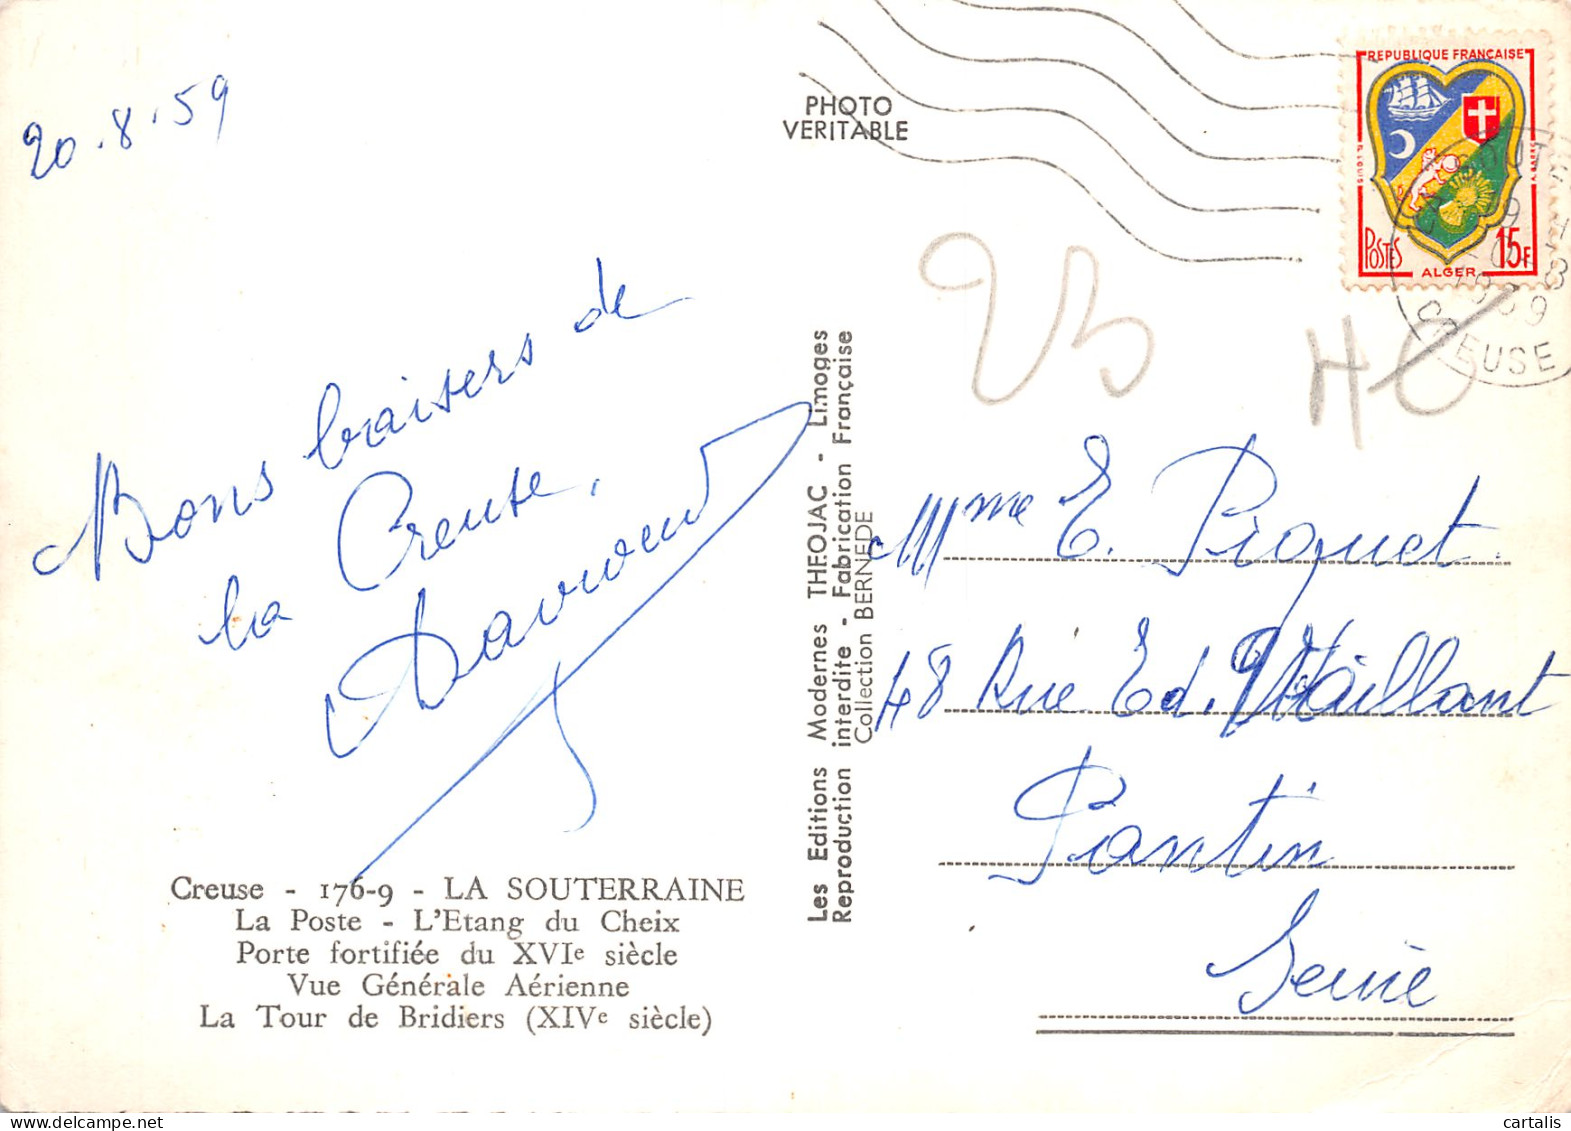 20.8.59
PHOTO
VERITABLE
REPUBLIQUE FRANÇAISE
POSTES
15F
ALGER
CREUSE
Bons baisers de
la Creuse.
Creuse - 176-9 - LA SOUTERRAINE
La Poste - L'Etang du Cheix
Porte fortifiée du XVIe siècle
Vue Générale Aérienne
La Tour de Bridiers (XIVe siècle)
Les Editions Modernes THEOJAC - Limoges
Reproduction interdite - Fabrication Française
Collection BERNEDE
Mme E. Piquet
48 Rue Ed. Vaillant
Pantin
Seine
cartalis
delcampe.net